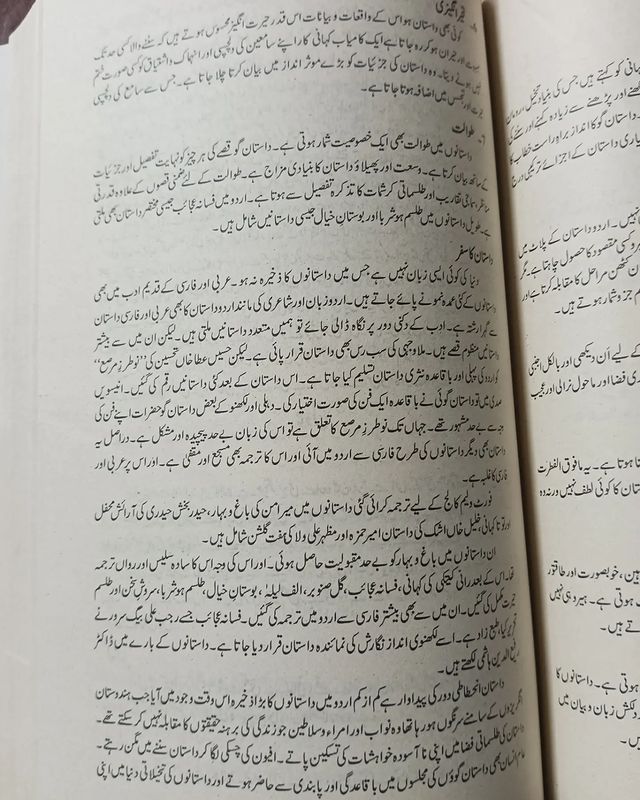 ۶۔ تحیر انگیزی
کوئی بھی داستان ہو اس کے واقعات و بیانات اس قدر حیرت انگیز محسوس ہوتے ہیں کہ سننے والا کسی حد تک
مبہوت اور حیران ہو کر رہ جاتا ہے ایک کامیاب کہانی کار اپنے سامعین کی دلچسپی اور انہماک و اشتیاق کو کسی صورت ختم
نہیں ہونے دیتا۔ وہ داستان کی جزئیات کو بڑے موثر انداز میں بیان کرتا چلا جاتا ہے۔ جس سے سامع کی دلچسپی
حیرت اور تجسس میں اضافہ ہوتا جاتا ہے۔
۷۔ طوالت
داستانوں میں طوالت بھی ایک خصوصیت شمار ہوتی ہے۔ داستان گو قصے کی ہر چیز کو نہایت تفصیل اور جزئیات
کے ساتھ بیان کرتا ہے۔ وسعت اور پھیلاؤ داستان کا بنیادی مزاج ہے۔ طوالت کے لئے ضمنی قصوں کے علاوہ قدرتی
مناظر، سماجی تقاریب اور طلسماتی کرشمات کا تذکرہ تفصیل سے ہوتا ہے۔ اردو میں فسانہ عجائب جیسی مختصر داستان بھی ملتی
ہے۔ طویل داستانوں میں طلسم ہوشربا اور بوستان خیال جیسی داستانیں شامل ہیں۔
داستان کا سفر
دنیا کی کوئی ایسی زبان نہیں ہے جس میں داستانوں کا ذخیرہ نہ ہو۔ عربی اور فارسی کے قدیم ادب میں بھی
داستانوں کے کئی عمدہ نمونے پائے جاتے ہیں۔ اردو زبان اور شاعری کی مانند اردو داستان کا بھی عربی اور فارسی داستان
سے گہرا رشتہ ہے۔ ادب کے دکنی دور پر نگاہ ڈالی جائے تو ہمیں متعدد داستانیں ملتی ہیں۔ لیکن ان میں سے بیشتر
داستانیں منظوم قصے ہیں۔ ملا وجہی کی سب رس بھی داستان قرار پائی ہے۔ لیکن حسین عطا خاں تحسین کی ’’نو طرز مرصع‘‘
کو اردو کی پہلی اور باقاعدہ نثری داستان تسلیم کیا جاتا ہے۔ اس داستان کے بعد کئی داستانیں رقم کی گئیں۔ انیسویں
صدی میں تو داستان گوئی نے باقاعدہ ایک فن کی صورت اختیار کی۔ دہلی اور لکھنو کے بعض داستان گو حضرات اپنے فن کی
وجہ سے بے حد مشہور تھے۔ جہاں تک نو طرز مرصع کا تعلق ہے تو اس کی زبان بے حد پیچیدہ اور مشکل ہے۔ دراصل یہ
داستان بھی دیگر داستانوں کی طرح فارسی سے اردو میں آئی اور اس کا ترجمہ بھی مسجع اور مقفیٰ ہے۔ اور اس پر عربی اور
فارسی کا غلبہ ہے۔
فورٹ ولیم کالج کے لیے ترجمہ کرائی گئی داستانوں میں میر امن کی باغ و بہار، حیدر بخش حیدری کی آرائش محفل
اور توتا کہانی، خلیل خاں اشک کی داستان امیر حمزہ اور مظہر علی ولا کی ہفت گلشن شامل ہیں۔
ان داستانوں میں باغ و بہار کو بے حد مقبولیت حاصل ہوئی۔ اور اس کی وجہ اس کا سادہ سلیس اور رواں ترجمہ
تھا۔ اس کے بعد رانی کیتکی کی کہانی، فسانہ عجائب، گل صنوبر، الف لیلہٰ، بوستان خیال، طلسم ہوشربا، سروش سخن اور طلسم
حیرت مکمل کی گئیں۔ ان میں سے بھی بیشتر فارسی سے اردو میں ترجمہ کی گئیں۔ فسانہ عجائب جسے رجب علی بیگ سرور نے
تحریر کیا، طبع زاد ہے۔ اسے لکھنوی انداز نگارش کی نمائندہ داستان قرار دیا جاتا ہے۔ داستانوں کے بارے میں ڈاکٹر
رفیع الدین ہاشمی لکھتے ہیں۔
داستان انحطاطی دور کی پیداوار ہے کم از کم اردو میں داستانوں کا بڑا ذخیرہ اس وقت وجود میں آیا جب ہندوستان
انگریزوں کے سامنے سرنگوں ہو رہا تھا وہ نواب اور امراء و سلاطین جو زندگی کی برہنہ حقیقتوں کا مقابلہ نہیں کر سکتے تھے۔
داستان کی طلسماتی فضا میں اپنی نا آسودہ خواہشات کی تسکین پاتے۔ افیون کی چسکی لگا کر داستان سننے میں مگن رہتے۔
عام انسان بھی داستان گوؤں کی مجلسوں میں باقاعدگی اور پابندی سے حاضر ہوتے اور داستانوں کی تخیلاتی دنیا میں اپنی
ہانی کو کہتے ہیں جس کی بنیاد تخیل، رومان
لکھنے اور پڑھنے سے زیادہ کہنے اور سننے کی
داستان گو کا انداز براہ راست خطاب کا
بنیادی داستان کے اجزائے ترکیبی درج
نہیں۔ اردو داستان کے پلاٹ میں
مقصود کا حصول چاہتا ہے۔ مگر
کٹھن مراحل کا مقابلہ کرتا ہے اور
جزو شمار ہوتے ہیں۔
کے لیے اَن دیکھی اور بالکل اجنبی
فضا اور ماحول نرالی اور عجیب
ہوتا ہے۔ یہ مافوق الفطرت
داستان کا کوئی لطف نہیں ورنہ وہ
خوبصورت اور طاقتور
ہوتی ہے۔ ہیرو ہی نہیں
تے ہیں۔
ہوتی ہے۔ داستانوں کا
دلکش زبان و بیان میں
ہیں۔